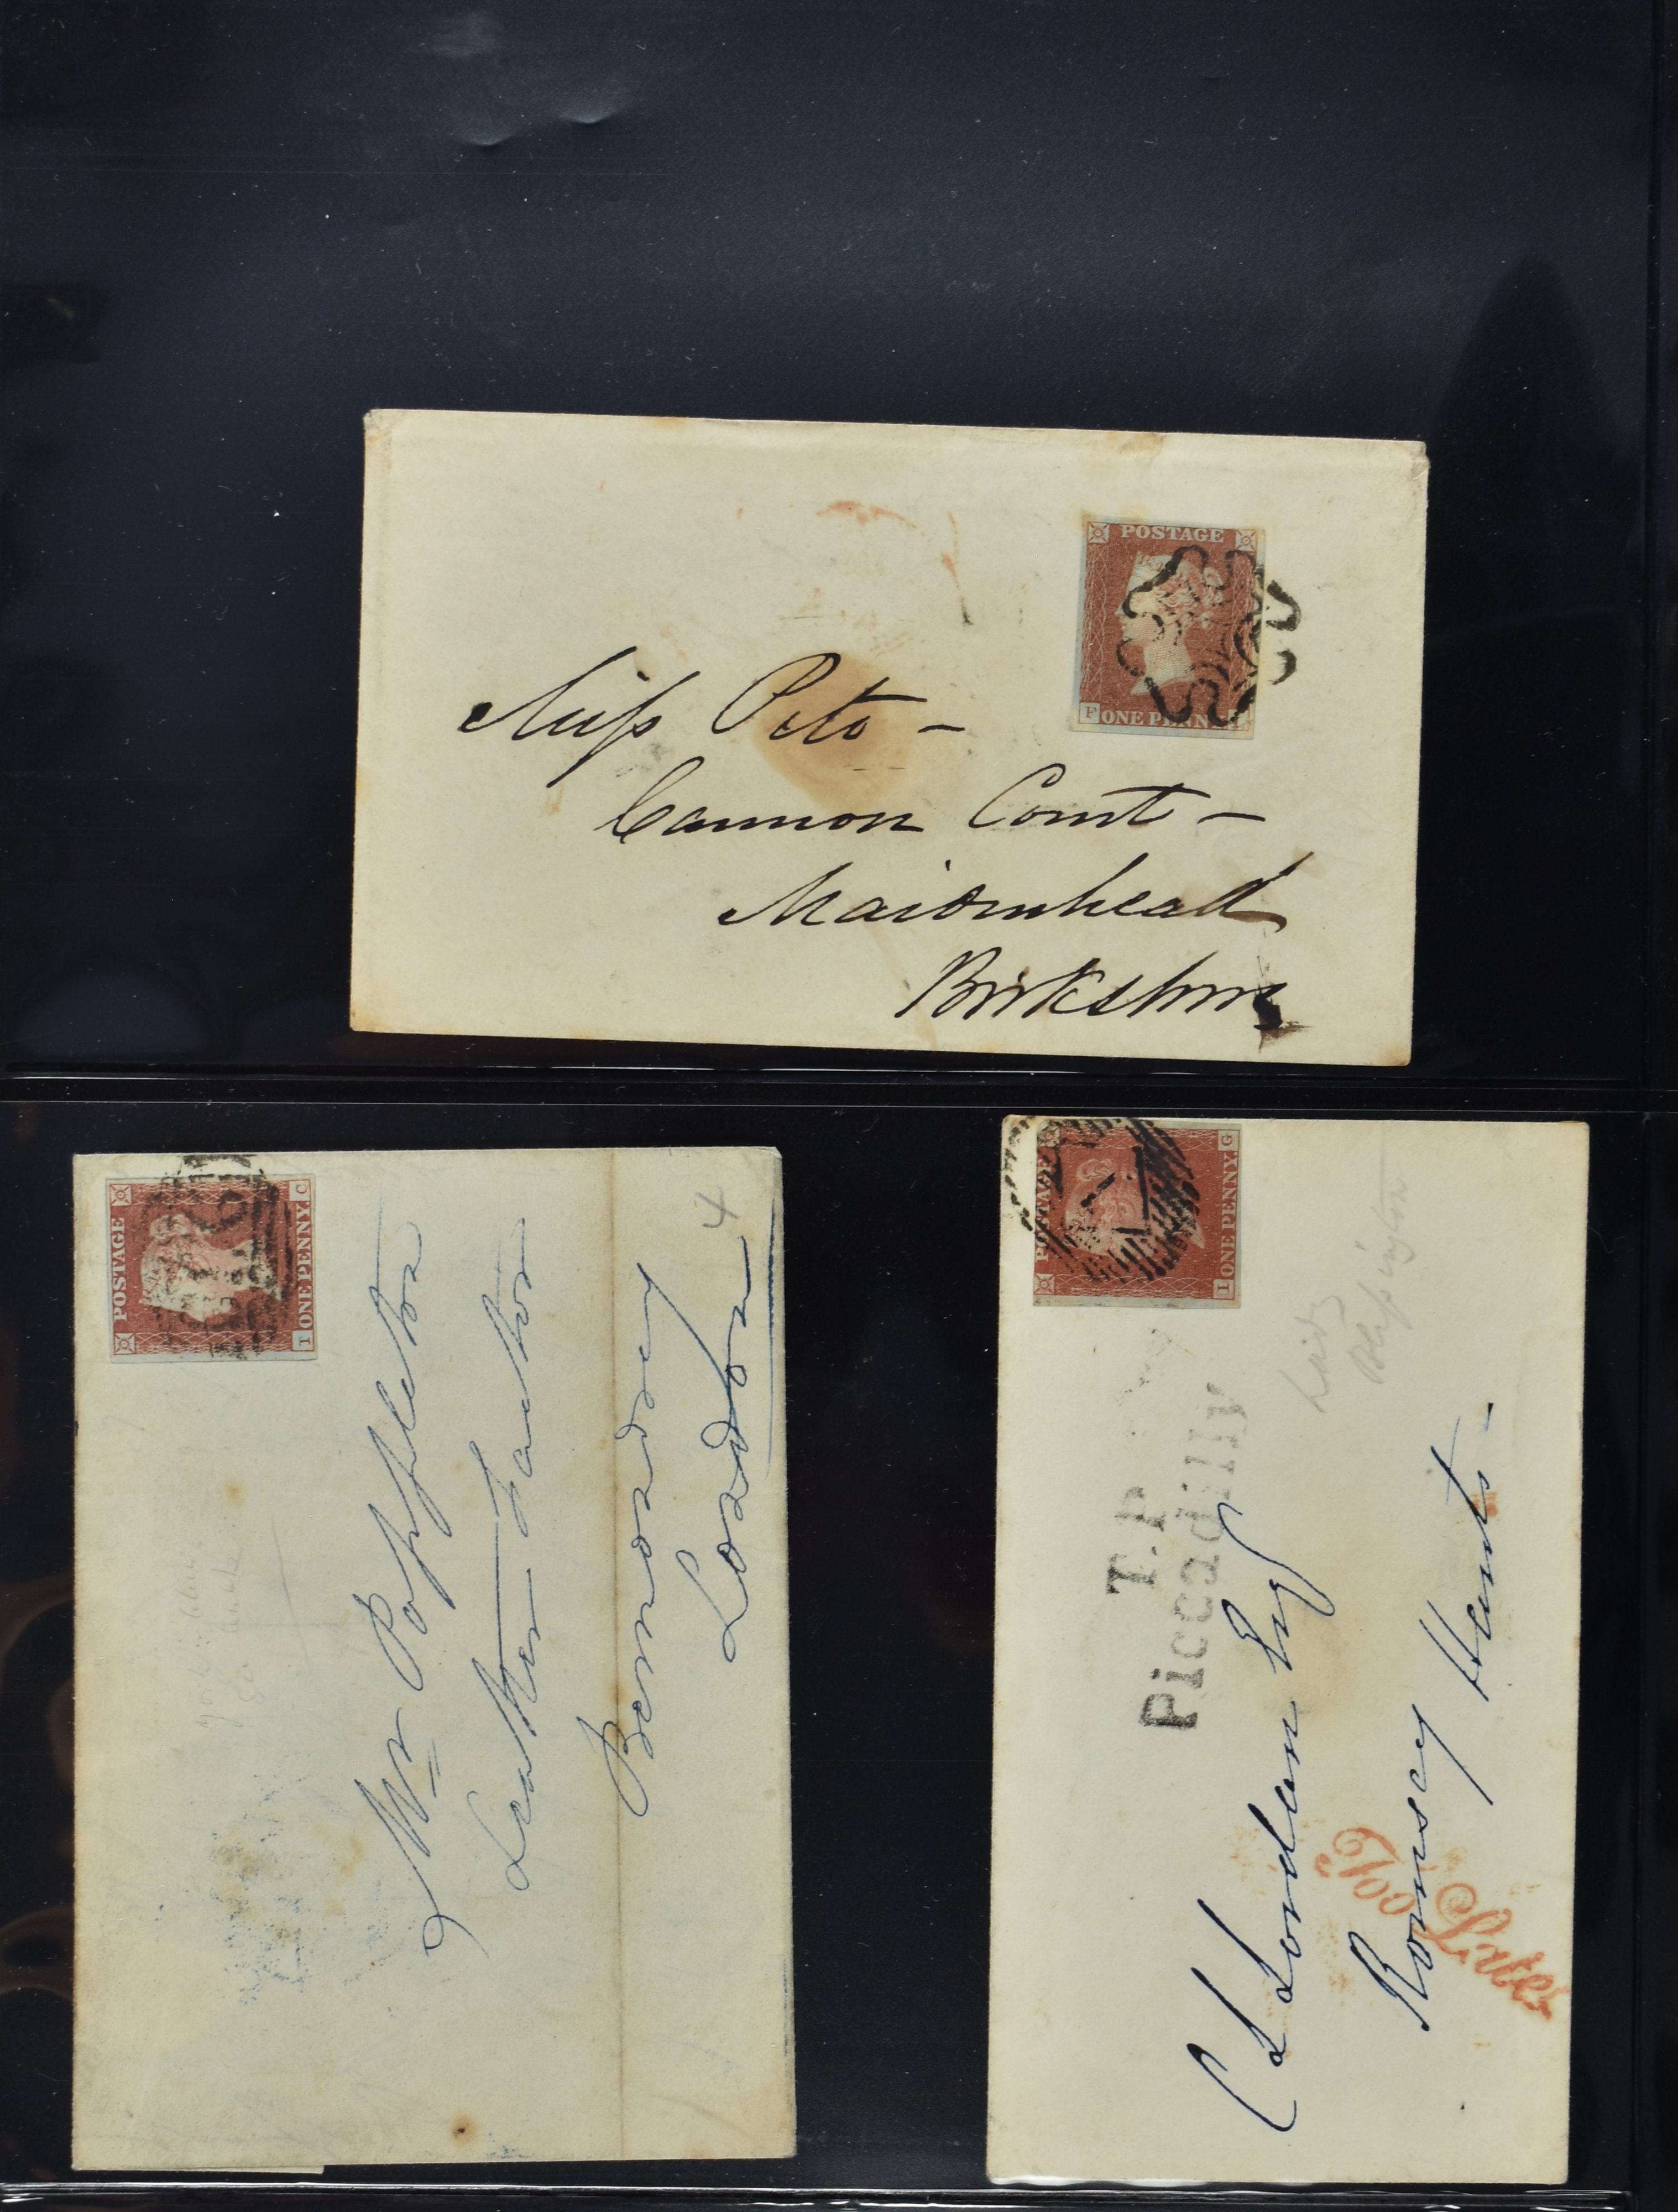 POSTAGE
F ONE PENNY
Miss Peto –
Cannon Court –
Maidenhead
Berkshire
POSTAGE
I ONE PENNY. C
Mr Poppleton
Leather Factor
Bermondsey
London
4
POSTAGE
I ONE PENNY. G
T.P
Piccadilly
Lady
Blessington
C L Lordan Esq
Romsey Hants –
Too Late